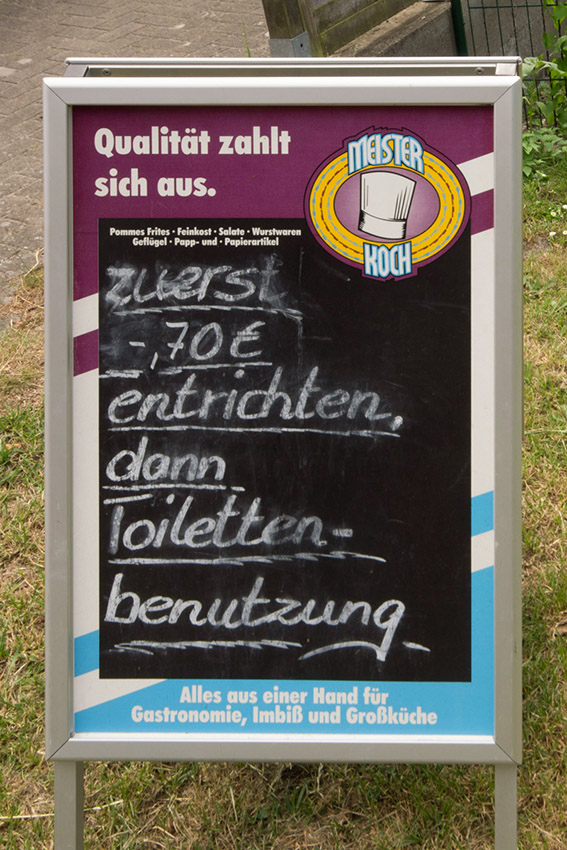 Qualität zahlt
sich aus.
MEISTER
KOCH
Pommes Frites · Feinkost · Salate · Wurstwaren
Geflügel · Papp- und · Papierartikel
zuerst
-,70 €
entrichten,
dann
Toiletten-
benutzung
Alles aus einer Hand für
Gastronomie, Imbiß und Großküche